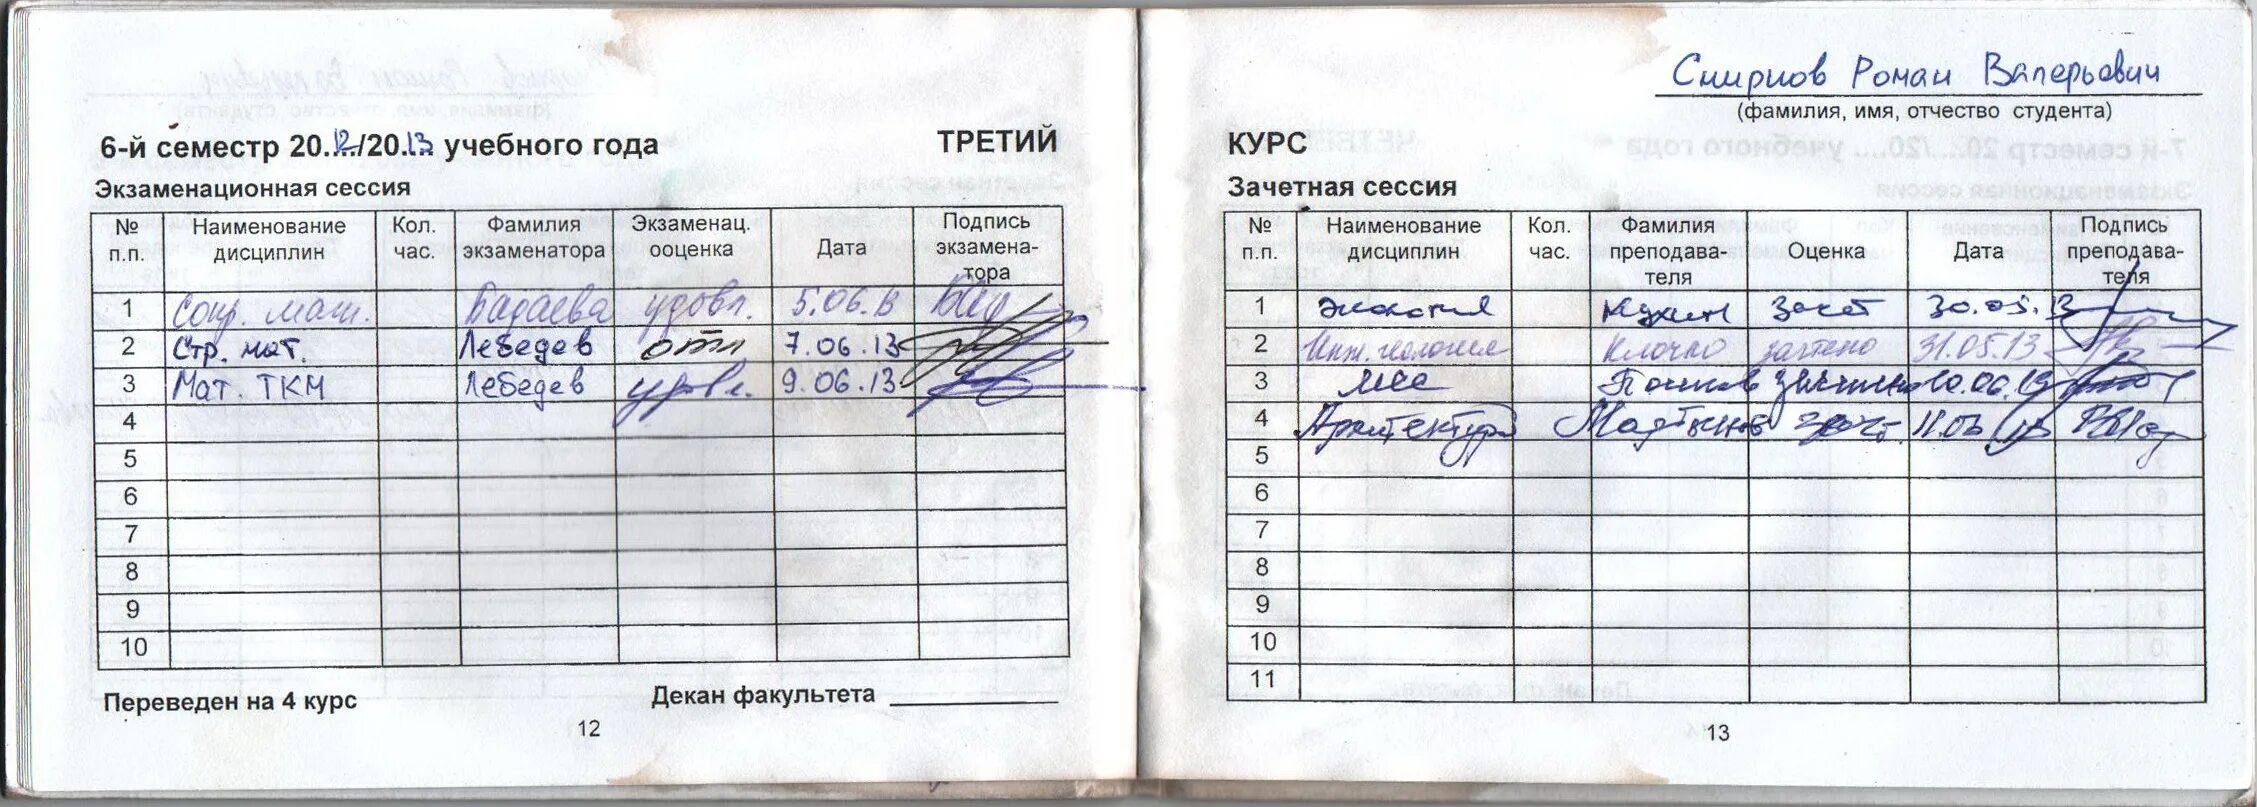 Смирнов Роман Валерьевич
(фамилия, имя, отчество студента)
6-й семестр 20.12/20.13 учебного года ТРЕТИЙ
Экзаменационная сессия
№ п.п. Наименование дисциплин Кол. час. Фамилия экзаменатора Экзаменац. ооценка Дата Подпись экзамена-тора
1 Сопр. мат. Бадаева удовл. 5.06.13
2 Стр. мат. Лебедев отл 7.06.13
3 Мат. ТКМ Лебедев удовл. 9.06.13
4
5
6
7
8
9
10
Переведен на 4 курс Декан факультета
12
КУРС
Зачетная сессия
№ п.п. Наименование дисциплин Кол. час. Фамилия преподава-теля Оценка Дата Подпись преподава-теля
1 Экология Кухин зачет 30.05.13
2 Инж. геология Клочко зачтено 31.05.13
3 10.06.13
4 Архитектура зачет 11.06
5
6
7
8
9
10
11
13